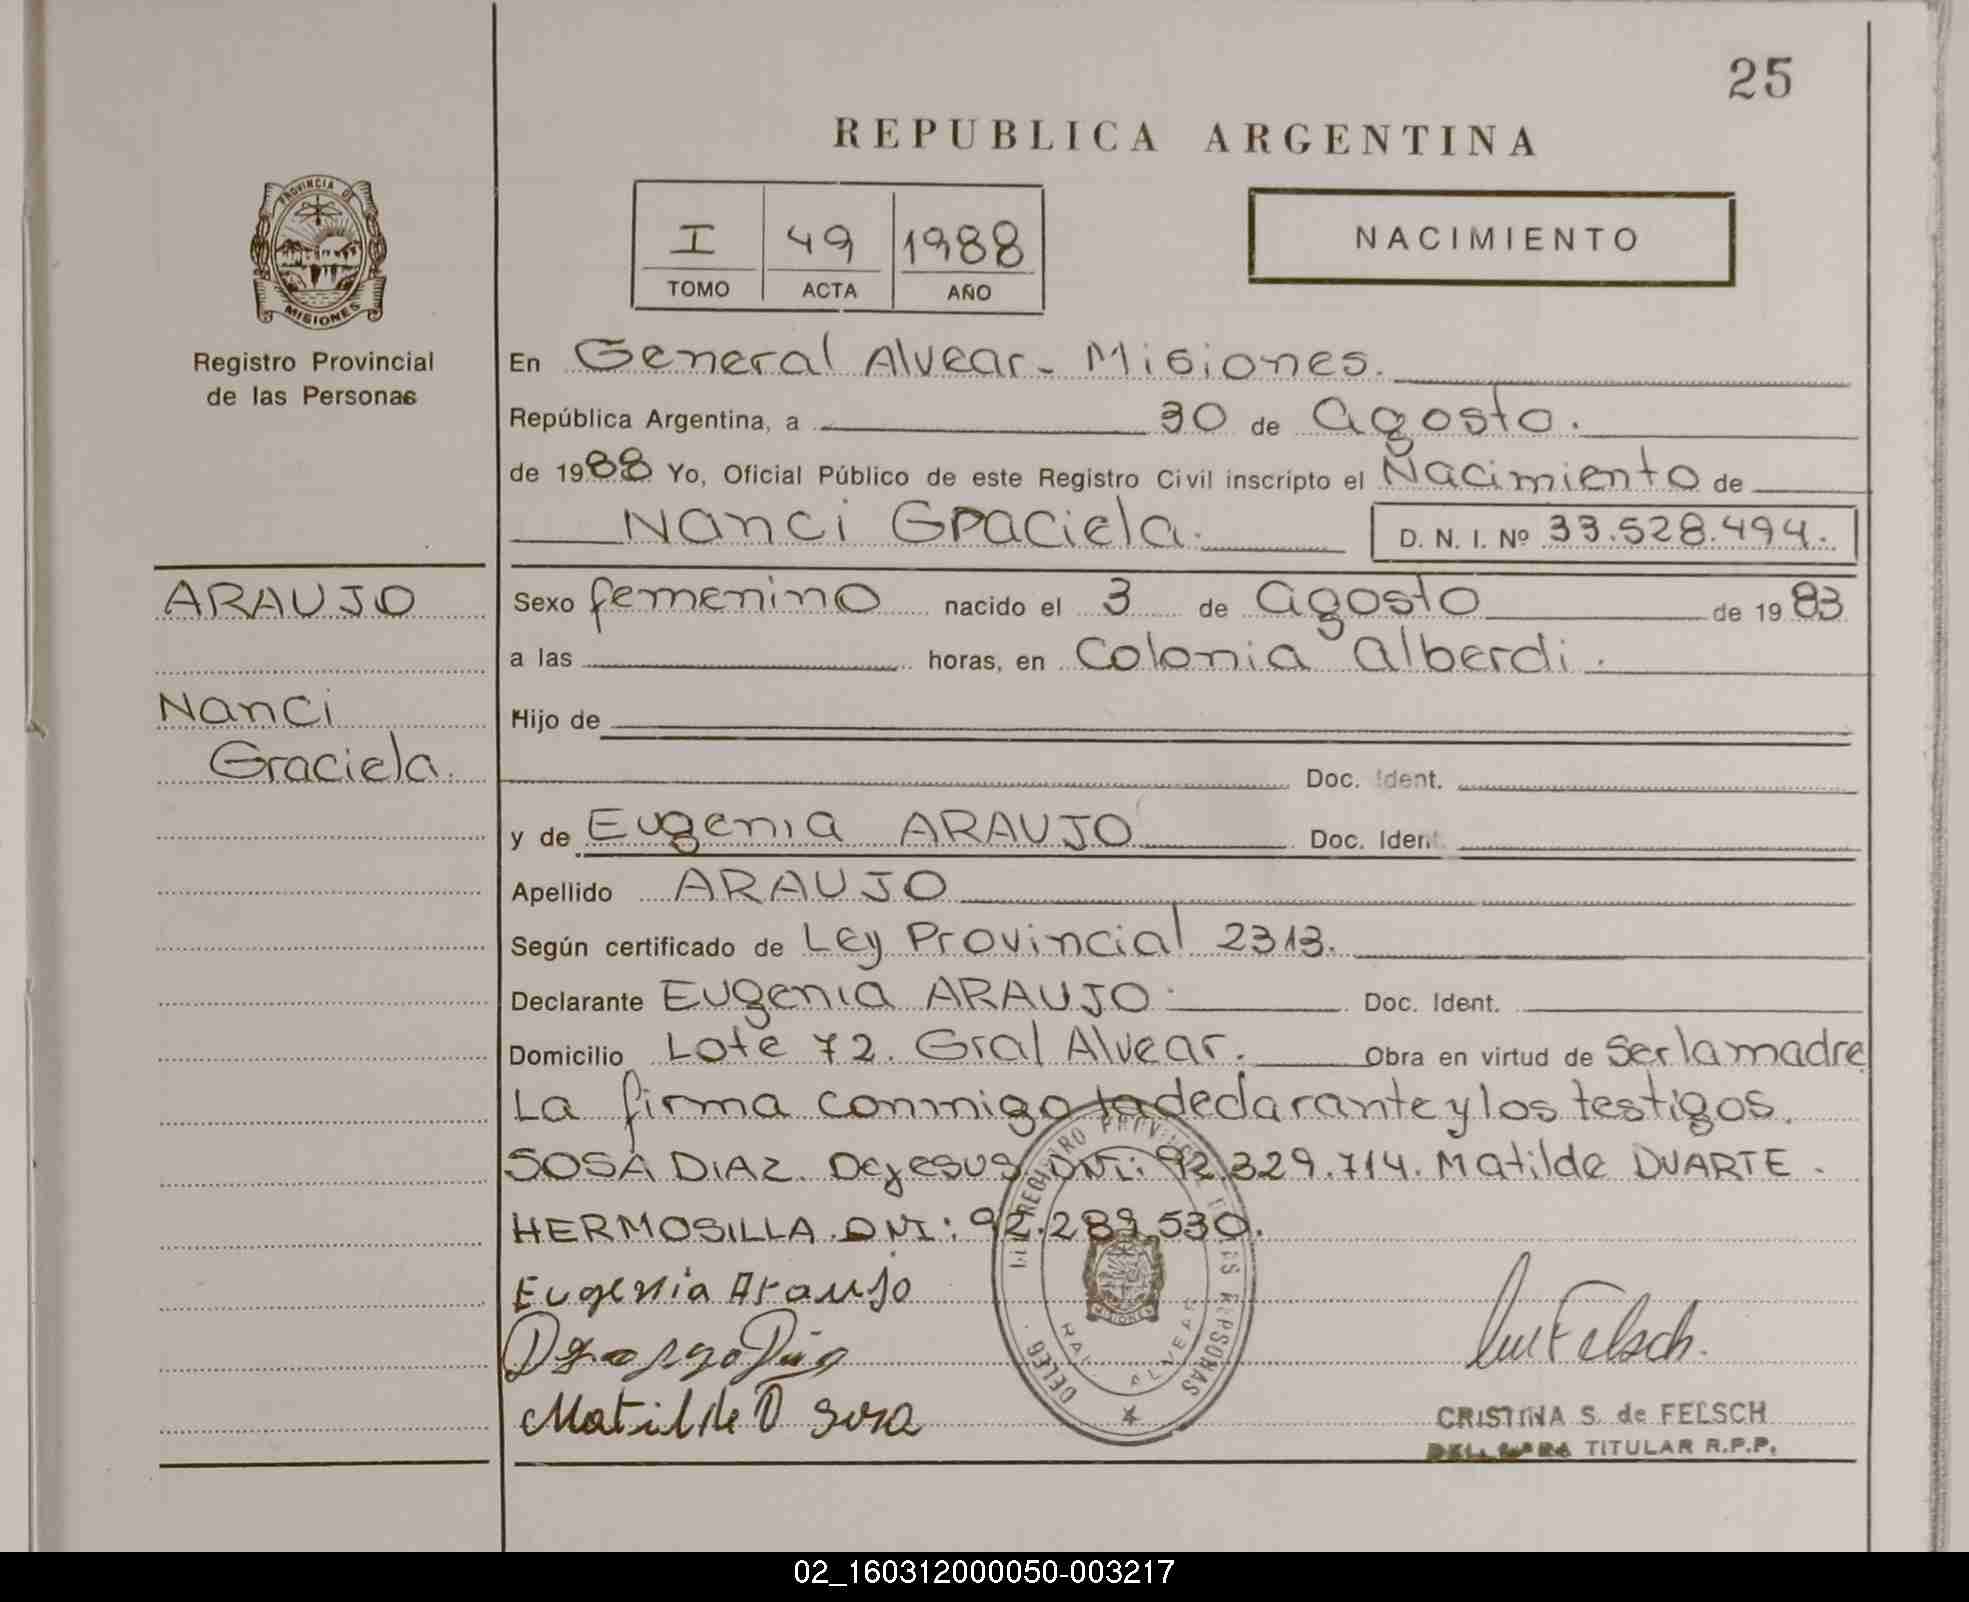 25
REPUBLICA ARGENTINA
I 49 1988
TOMO ACTA AÑO
NACIMIENTO
PROVINCIA DE
MISIONES
Registro Provincial
de las Personas
ARAUJO
Nanci
Graciela.
En General Alvear - Misiones.
República Argentina, a 30 de Agosto.
de 1988 Yo, Oficial Público de este Registro Civil inscripto el Nacimiento de
Nanci Graciela. D. N. I. Nº 33.528.494.
Sexo femenino nacido el 3 de Agosto de 1983
a las horas, en Colonia Alberdi.
Hijo de
Doc. Ident.
y de Eugenia ARAUJO Doc. Ident.
Apellido ARAUJO
Según certificado de Ley Provincial 2313.
Declarante Eugenia ARAUJO. Doc. Ident.
Domicilio Lote 72. Gral Alvear. Obra en virtud de Ser la madre
La firma conmigo la declarante y los testigos.
SOSA DIAZ. Dejesus DNI: 92.329.714. Matilde DUARTE.
HERMOSILLA. DNI: 92.289.530.
Eugenia Araujo
Matilde D Sosa
CRISTINA S. de FELSCH
TITULAR R.P.P.
02_160312000050-003217